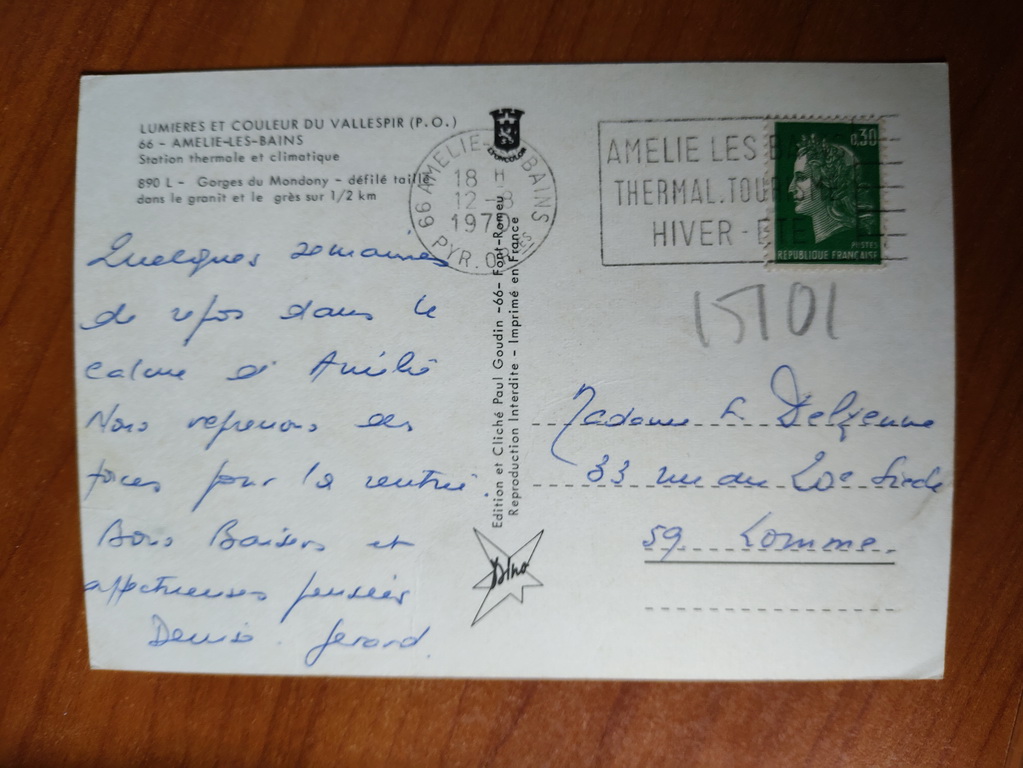 LUMIERES ET COULEUR DU VALLESPIR (P.O.)
66 - AMELIE-LES-BAINS
Station thermale et climatique
890 L - Gorges du Mondony - défilé taillé
dans le granit et le grès sur 1/2 km
Quelques semaines
de repos dans le
calme d'Amélie
Nous reprenons des
forces pour la rentrée
Bons Baisers et
affectueuses pensées
Denis. Gerard.
66 AMELIE-LES-BAINS
18 H
12 - 8
1970
PYR. OR LES
Edition et Cliché Paul Goudin -66- Font-Romeu
Reproduction Interdite - Imprimé en France
Dino
AMELIE LES BAINS
THERMAL.TOUR
HIVER - ETE
0,30
POSTES
REPUBLIQUE FRANÇAISE
15701
Madame F. Delzenne
33 rue du 20e Siècle
59 Lomme.